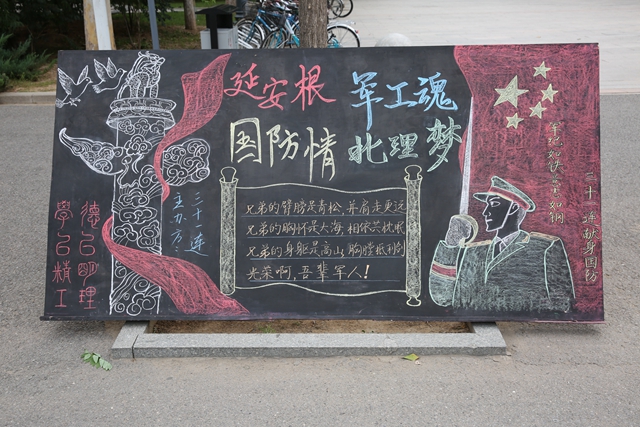 延安根 军工魂
国防情 北理梦
兄弟的臂膀是青松,并肩走更远
兄弟的胸怀是大海,相依共枕眠
兄弟的身躯是高山,胸膛抵利剑
光荣啊,吾辈军人!
德以明理
学以精工
三十一连
军纪如铁
三十一连献身国防